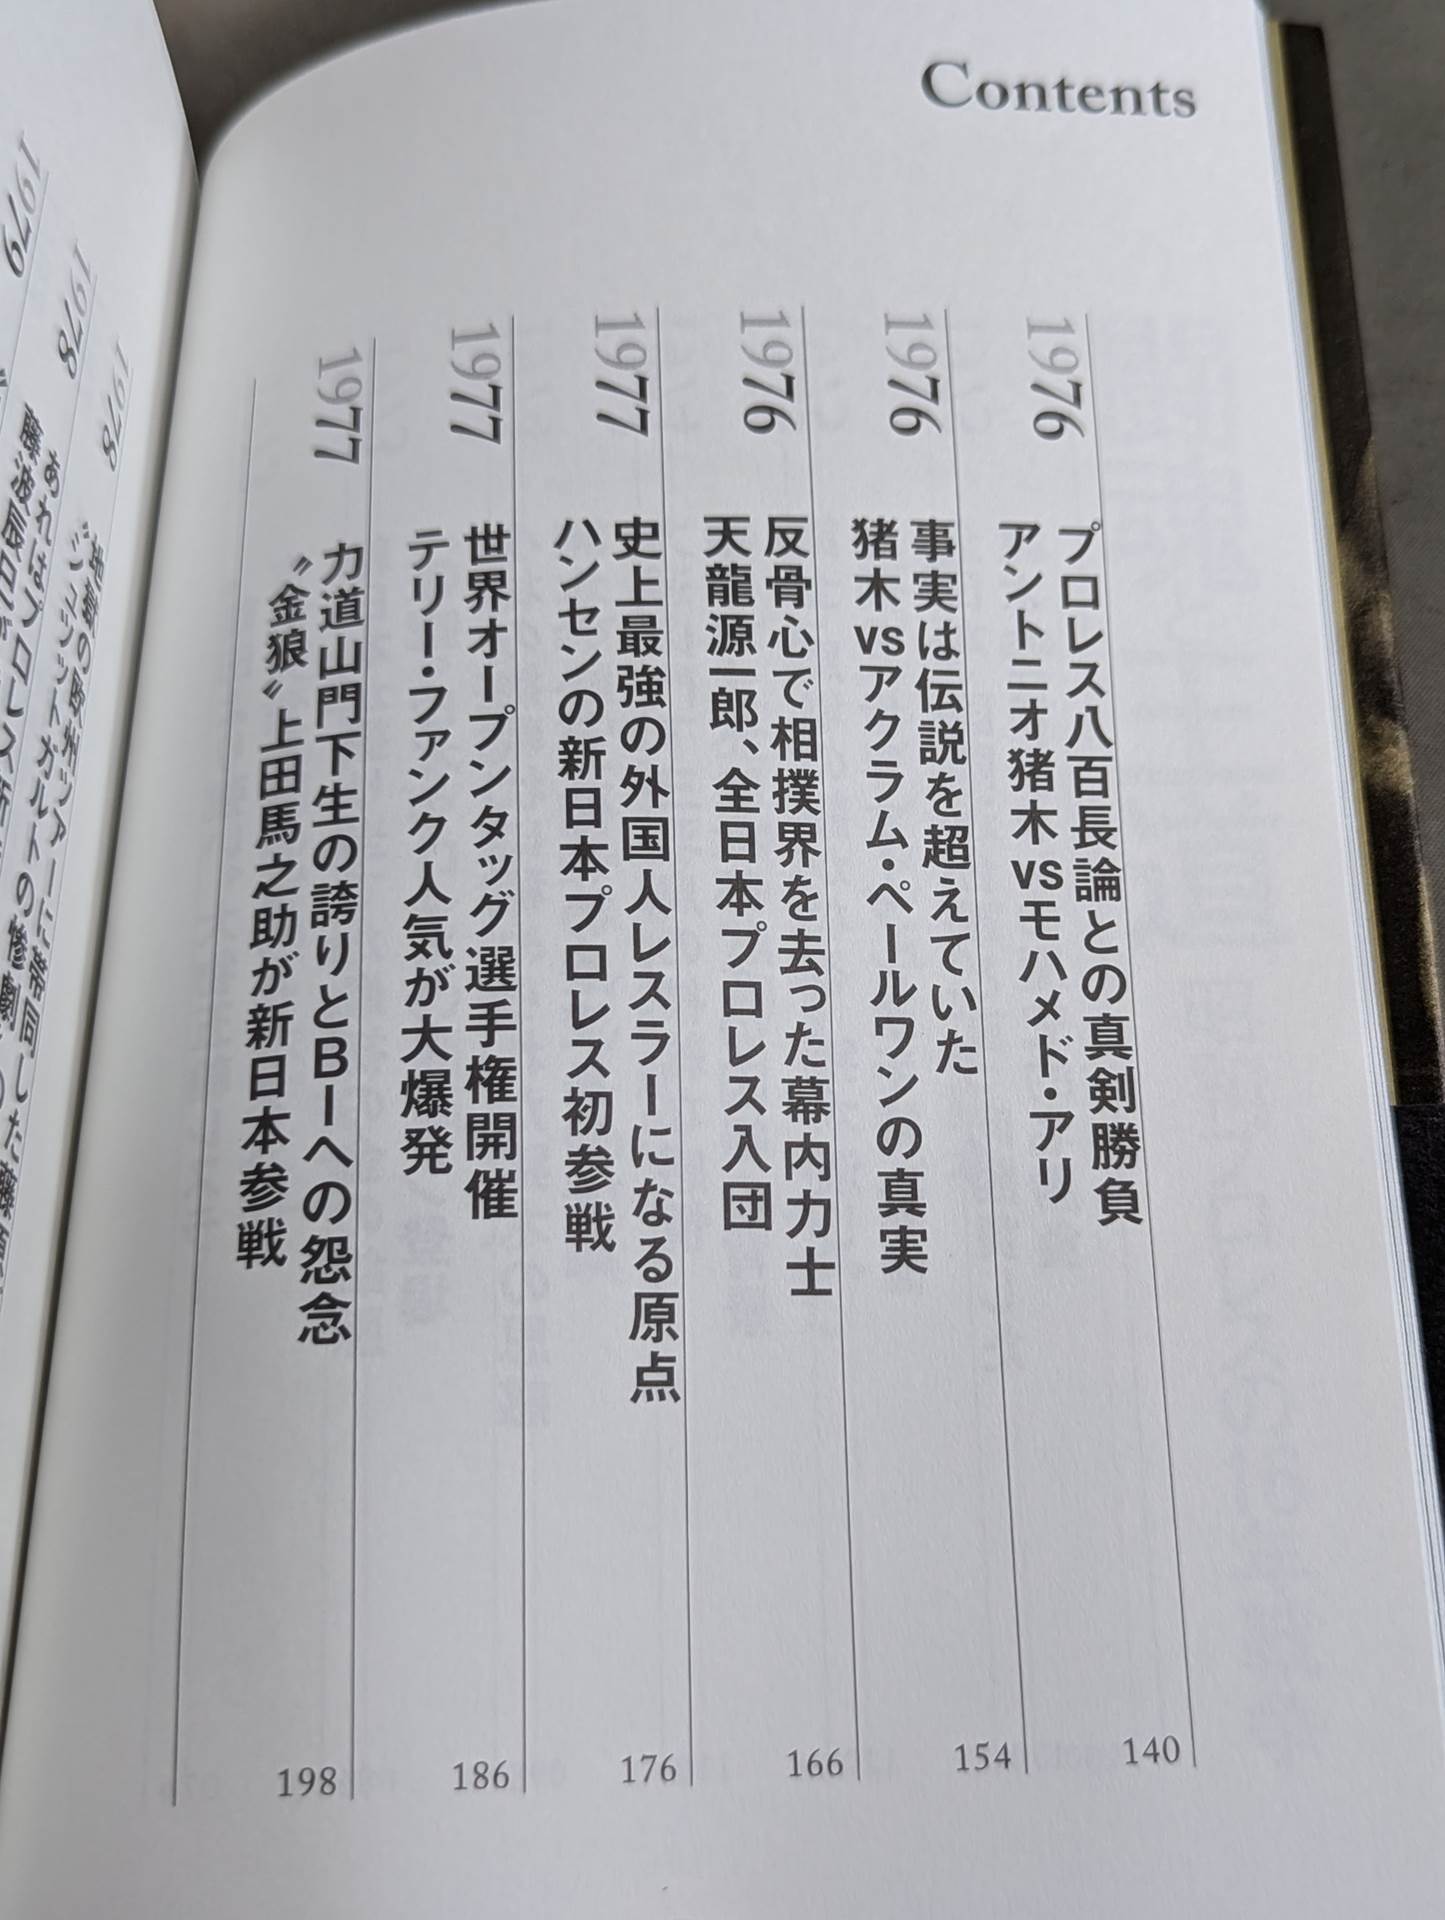 Contents
1976
プロレス八百長論との真剣勝負
アントニオ猪木vsモハメド・アリ
140
1976
事実は伝説を超えていた
猪木vsアクラム・ペールワンの真実
154
1976
反骨心で相撲界を去った幕内力士
天龍源一郎、全日本プロレス入団
166
1977
史上最強の外国人レスラーになる原点
ハンセンの新日本プロレス初参戦
176
1977
世界オープンタッグ選手権開催
テリー・ファンク人気が大爆発
186
1977
力道山門下生の誇りとBIへの怨念
〝金狼〟上田馬之助が新日本参戦
198
1978
1978
あれはプロレス
1979